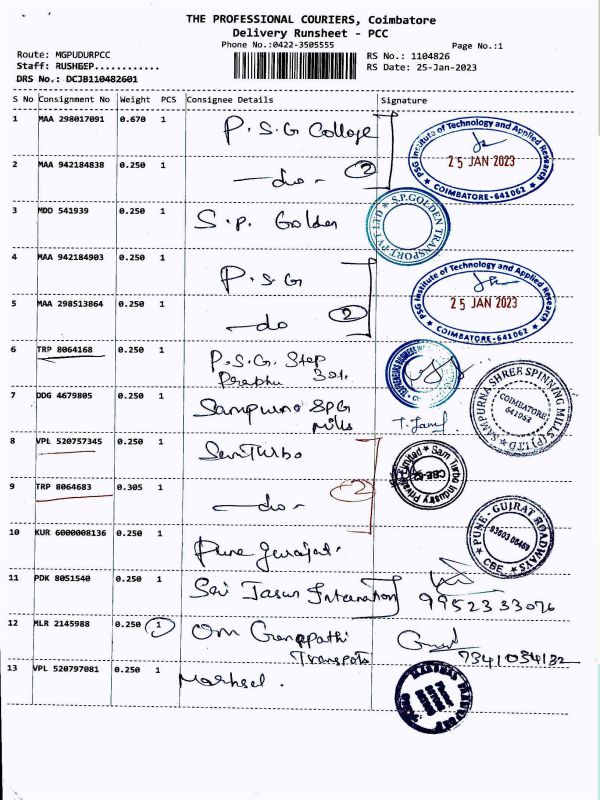 THE PROFESSIONAL COURIERS, Coimbatore
Delivery Runsheet - PCC
Phone No.:0422-3505555
Page No.:1
Route: MGPUDURPCC
Staff: RUSHEEP............
DRS No.: DCJB110482601
RS No.: 1104826
RS Date: 25-Jan-2023
S No Consignment No Weight PCS Consignee Details Signature
1 MAA 298017091 0.670 1 P.S.G College
PSG Institute of Technology and Applied Research
25 JAN 2023
COIMBATORE-641062
2 MAA 942184838 0.250 1 -do- 2
3 MDD 541939 0.250 1 S.P. Golden
S.P.GOLDEN TRANSPORT PVT LTD
4 MAA 942184903 0.250 1 P.S.G
PSG Institute of Technology and Applied Research
25 JAN 2023
COIMBATORE-641062
5 MAA 298513864 0.250 1 -do 2
6 TRP 8064168 0.250 1 P.S.G. Step
Prabhu
7 DDG 4679805 0.250 1 Sampurna SPG
Mills
SAMPURNA SHREE SPINNING MILLS (P) LTD
COIMBATORE
641062
8 VPL 520757345 0.250 1 Sam Turbo
Sam Turbo Industry Private Limited
9 TRP 8064683 0.305 1 -do- 2
10 KUR 6000008136 0.250 1 Pune Gujarat.
PUNE - GUJRAT ROADWAYS
93603 06469
CBE
11 PDK 8051540 0.250 1 Sri Jasun International 9952333076
12 MLR 2145988 0.250 1 Om Ganappathi
Transports 7341034132
13 VPL 520797081 0.250 1